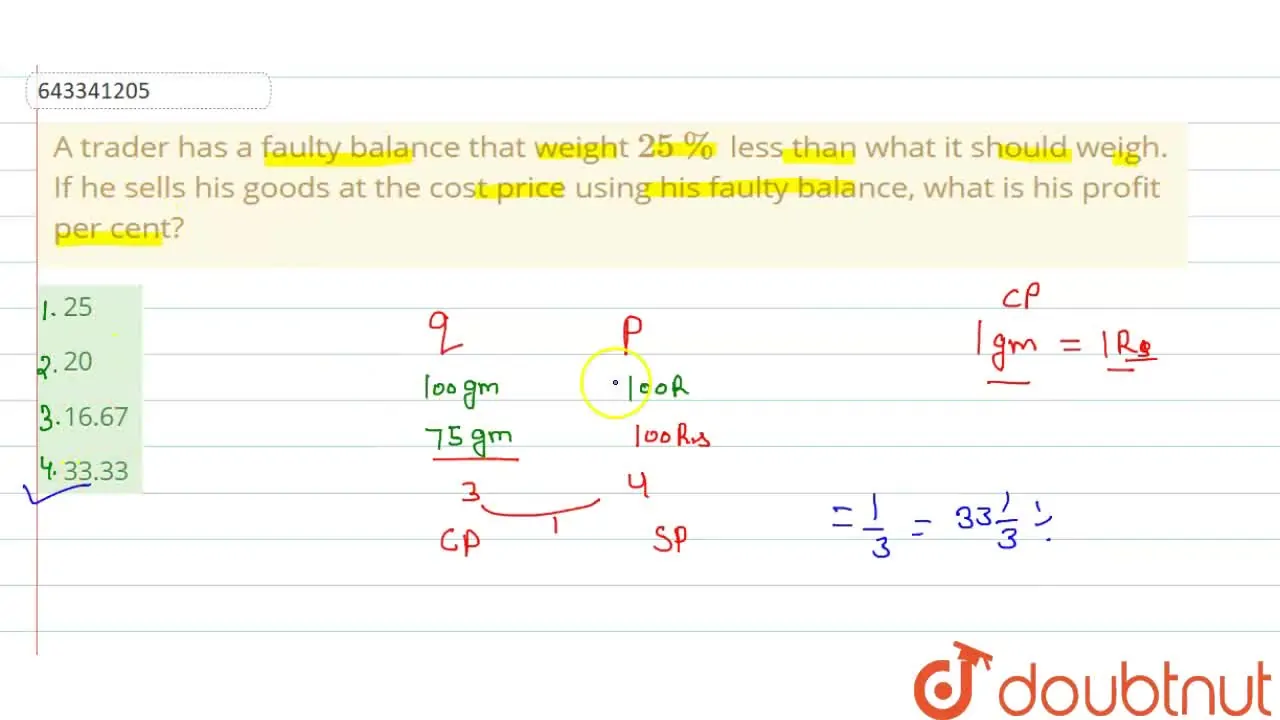 643341205
A trader has a faulty balance that weight 25 % less than what it should weigh.
If he sells his goods at the cost price using his faulty balance, what is his profit
per cent?
1. 25
2. 20
3. 16.67
4. 33.33
q P
100gm 100R
75 gm 100Rs
3 4
1
CP SP
CP
1 gm = 1 Rs
= 1/3 = 33 1/3 %
doubtnut